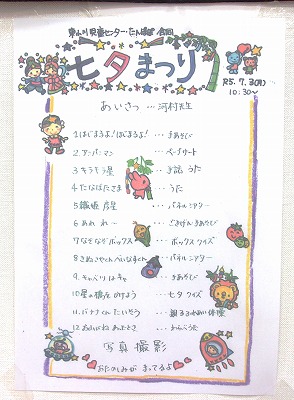 東小川児童センター・たんぽぽ 合同
七夕まつり
R5.7.3(月)
10:30〜
あいさつ …河村先生
1.はじまるよ!はじまるよ! …手あそび
2.アンパンマン …ペープサート
3.キラキラ星 …手話 うた
4.たなばたさま …うた
5.織姫 彦星 …パネルシアター
6.あれ れ〜 …手あそび
7.なぞなぞボックス …ボックス クイズ
8. …パネルシアター
9.キャベツ は キャ …手あそび
10.星の橋を かけよう …七夕 クイズ
11.バナナくん たいそう …親子ふれあい体操
12. …わらべうた
写真撮影
おたのしみが まってるよ